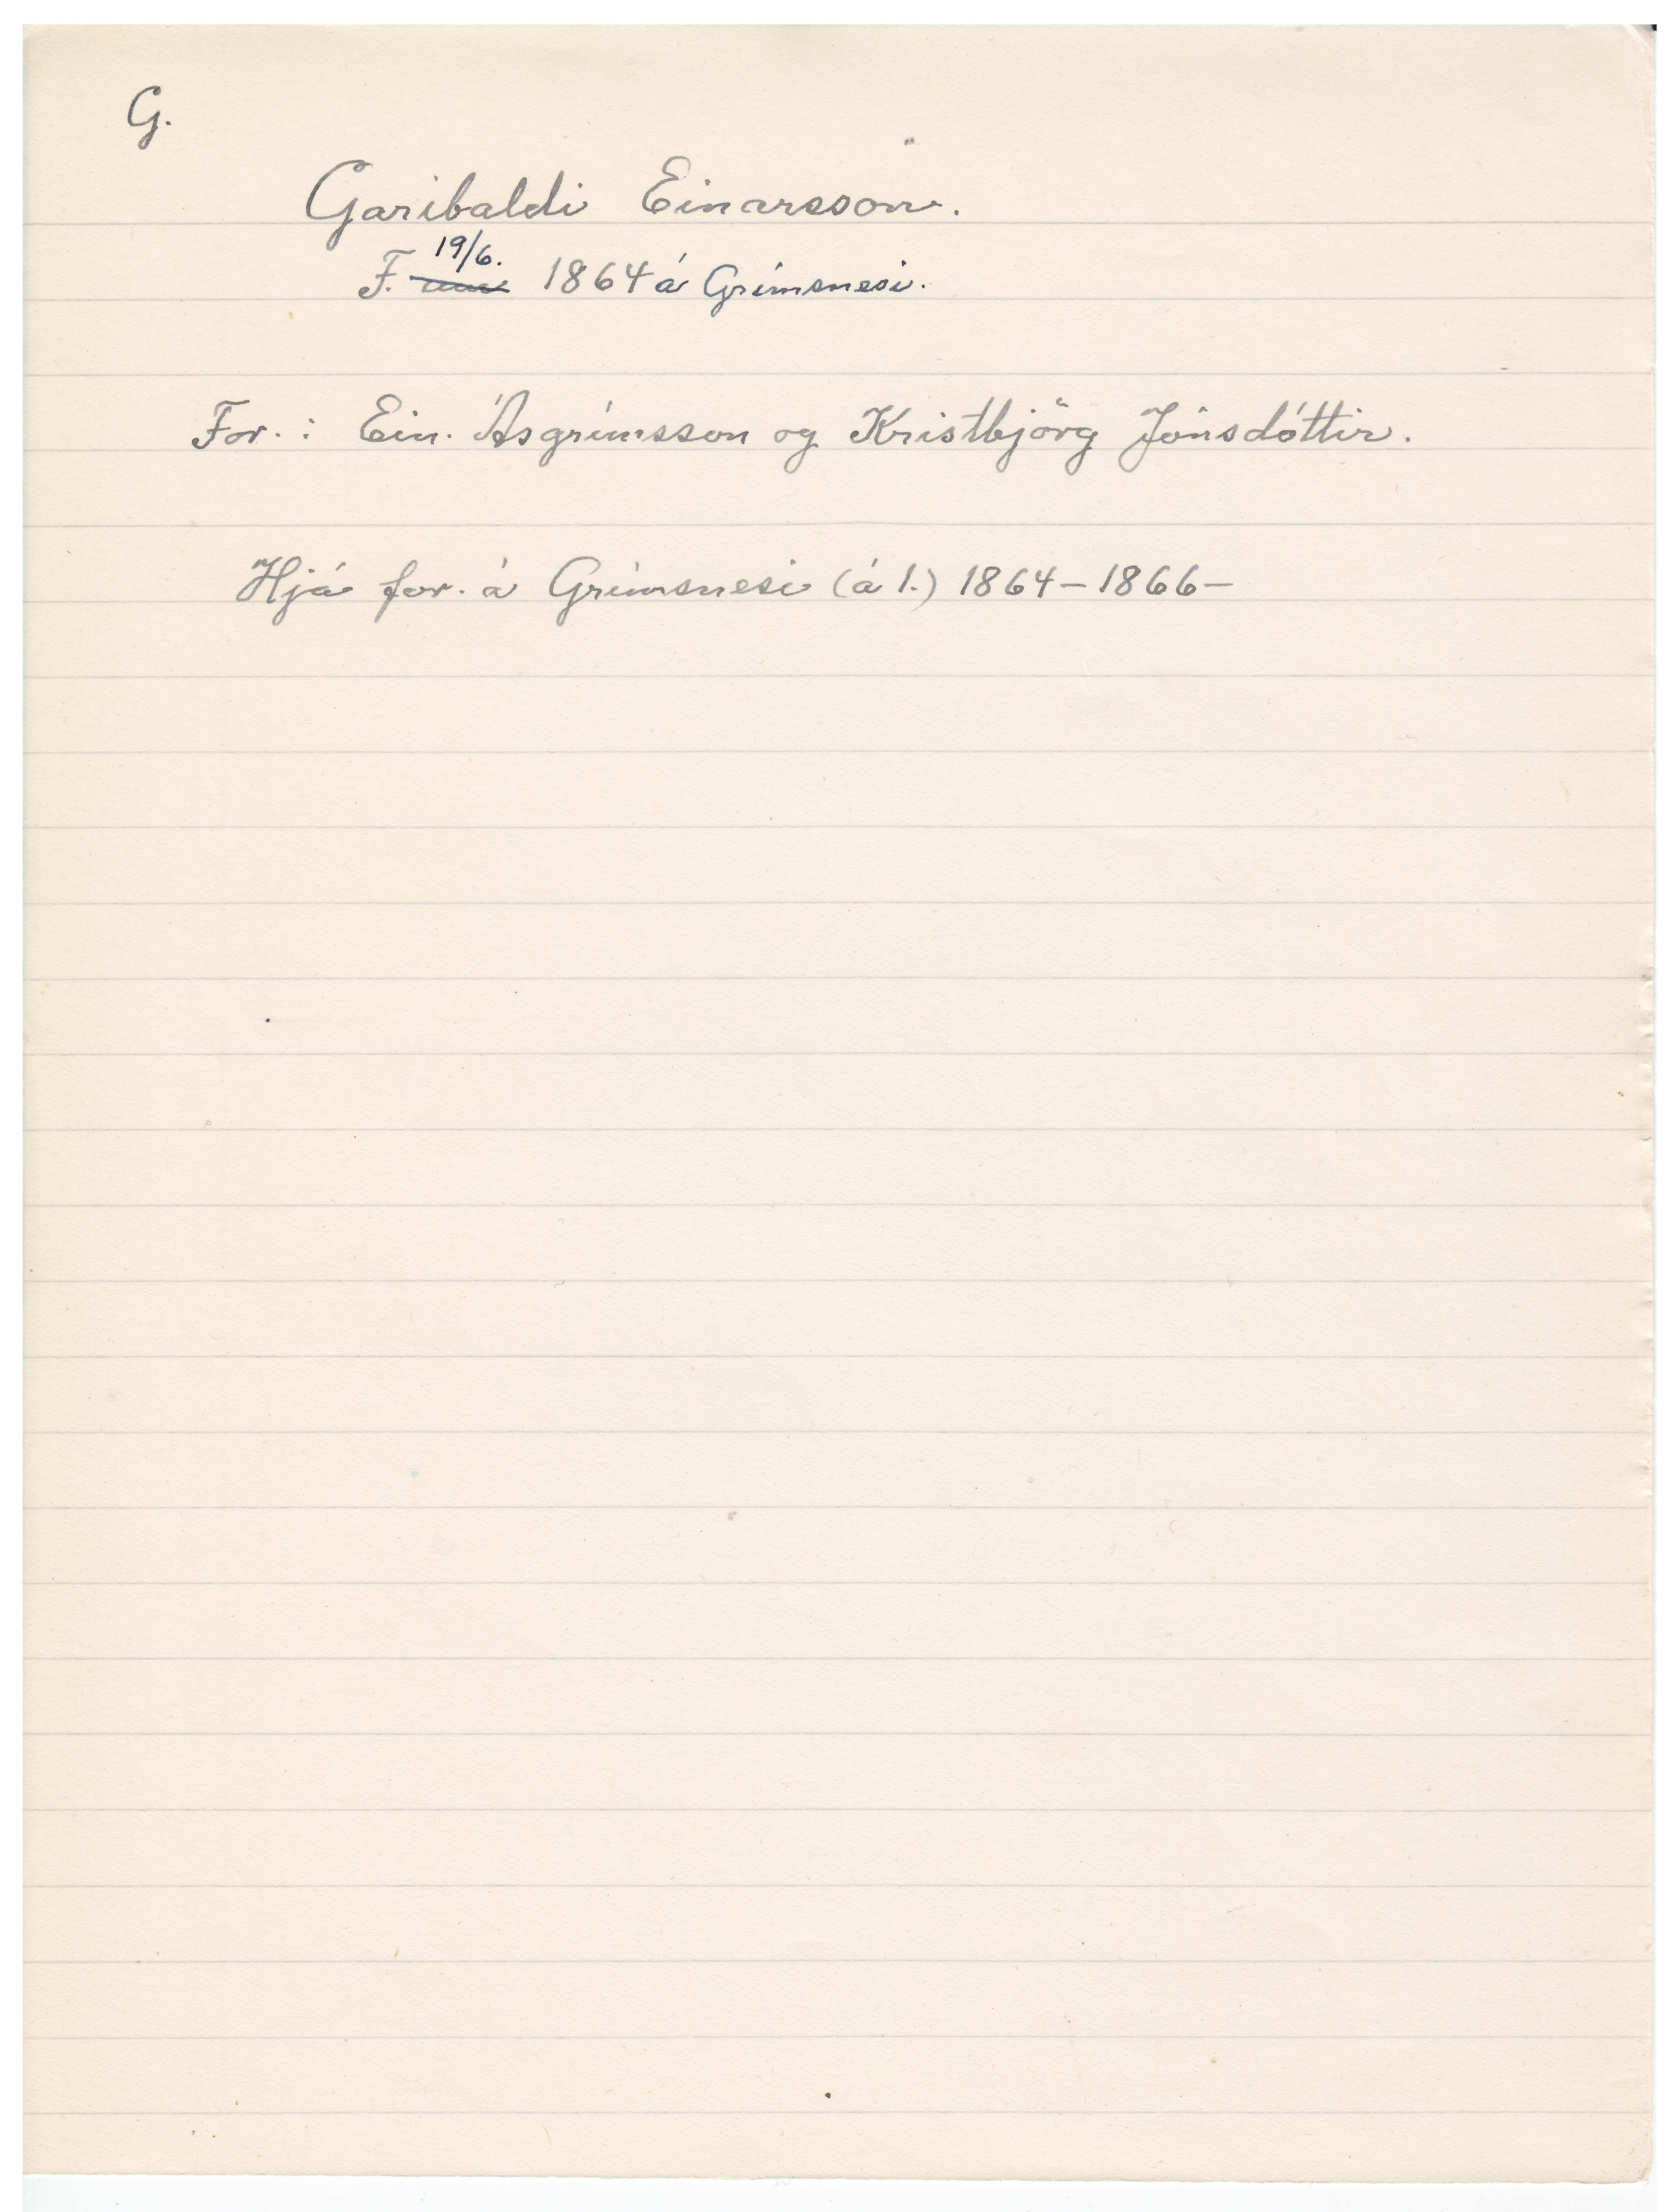 G.
Garibaldi Einarsson.
19/6.
F. um 1864 á Grímsnesi.
For.: Ein. Ásgrímsson og Kristbjörg Jónsdóttir.
Hjá for. á Grímsnesi (á 1.) 1864 – 1866 –